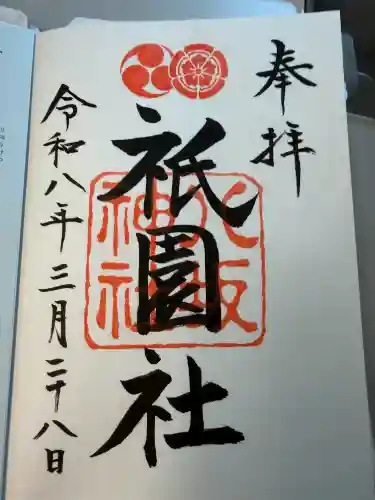 奉拝
祇園社
八坂
神社
令和八年三月二十八日